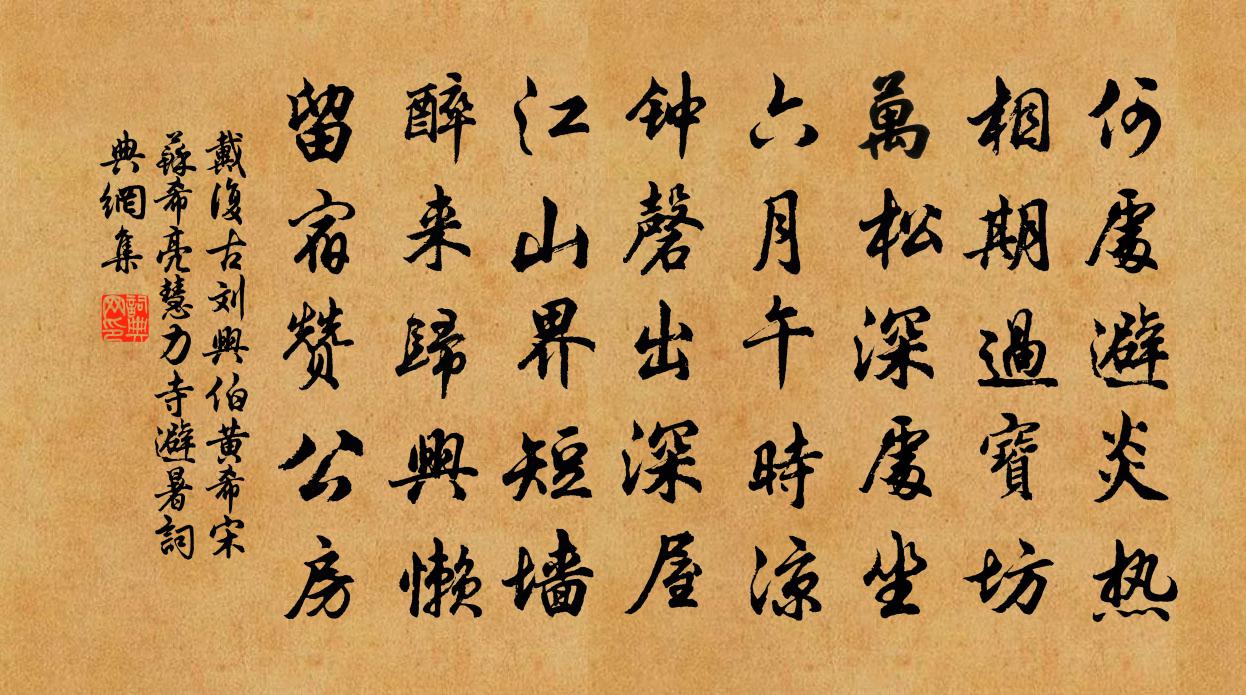 何處避炎热
相期過寶坊
萬松深處坐
六月午時涼
钟磬出深屋
江山界短墙
醉来歸興懒
留宿赞公房
戴復古刘興伯黄希宋
蘇希亮慧力寺避暑詞
典網集
詞典網印